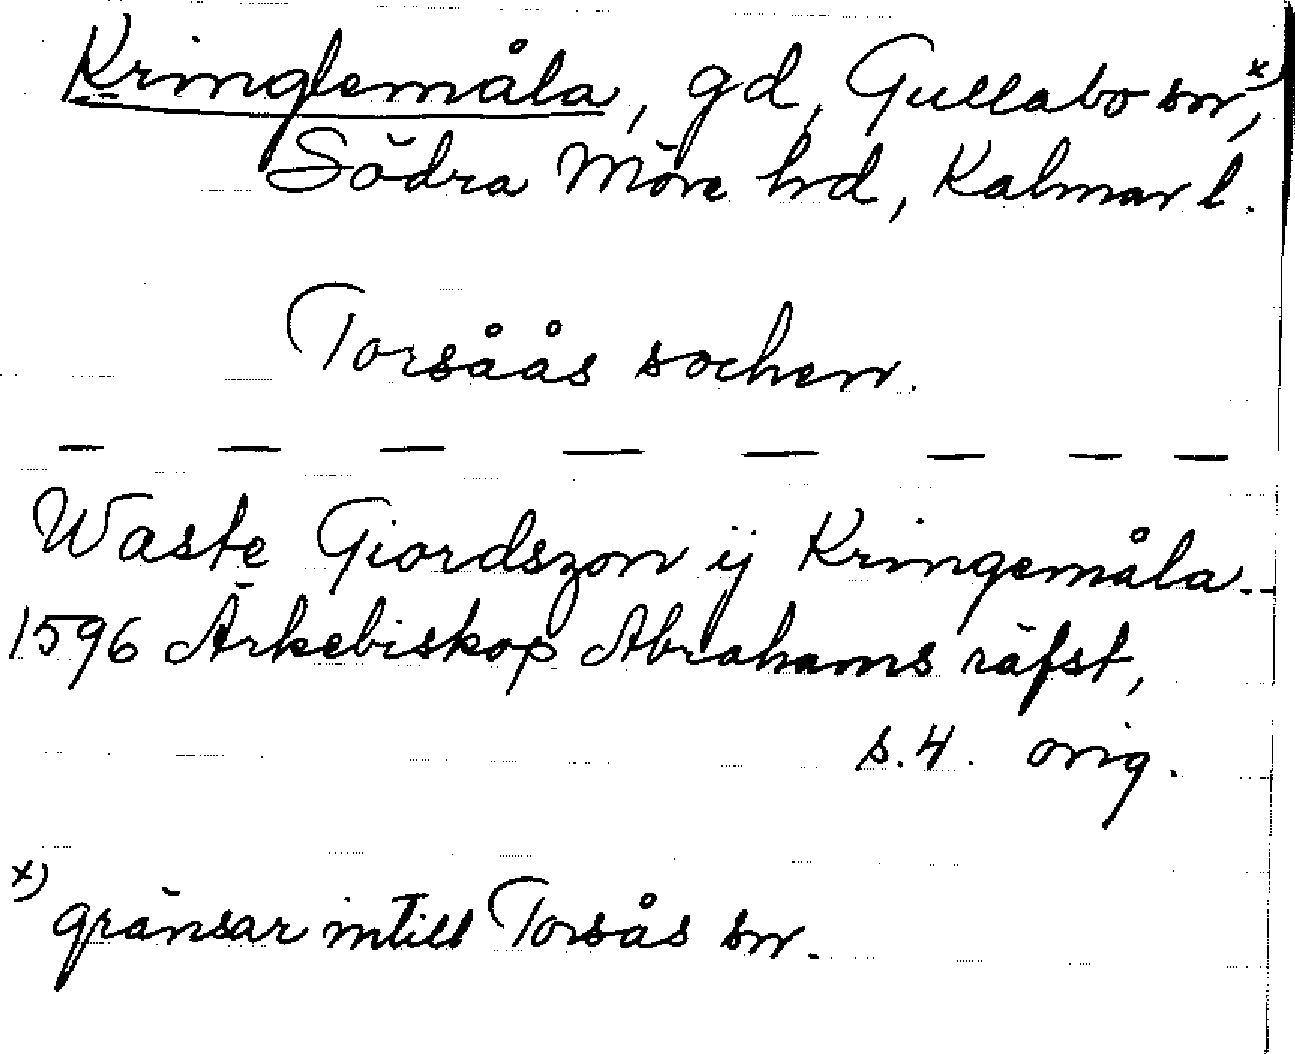 Kringlemåla, gd, Gullabo sn x),
Södra Möre hd, Kalmar l.
Torsåås sochen.
— — — — — — — —
Waste Giordszon ij Kringemåla--
1596 Ärkebiskop Abrahams räfst,
s. 4. orig.
x) gränsar intill Torsås sn.